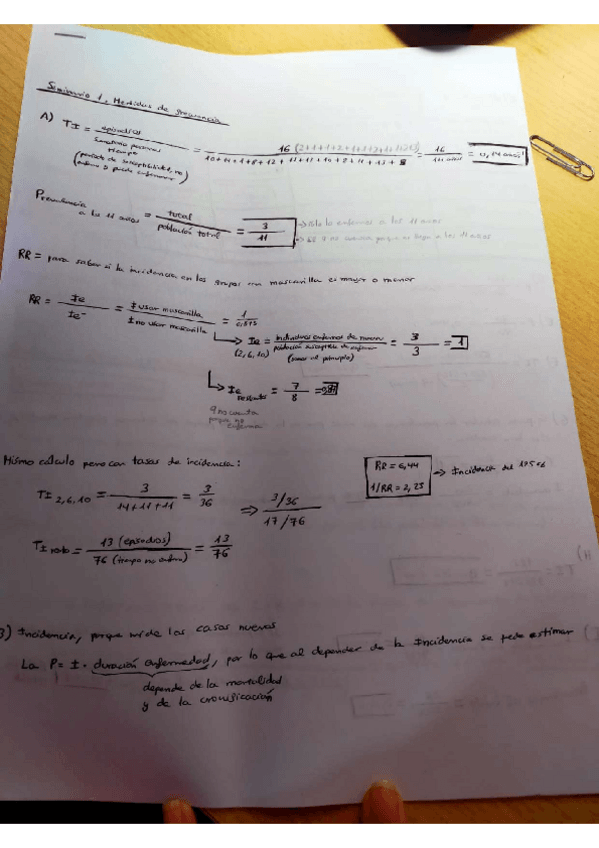 Seminario 1. Medidas de frecuencia
A) TI = episodios / Sumatorio personas tiempo = 16 (2+1+1+2+1+1+3+ / 10+11+1+8+12+11+11+10+ = 16 / 111 años = 0,14 años⁻¹
(periodo de susceptibilidad, no
enfermo y puede enfermar)
Prevalencia a los 11 años = total / población total = 3 / 11 → sólo lo enfermos a los 11 años
→ no cuenta porque no llega a los 11 años
RR = para saber si la incidencia en los grupos con mascarilla es mayor o menor
RR = Ie / Ie⁻ = I usar mascarilla / I no usar mascarilla = 1 / 0,875
↳ Ie (2,6,10) = individuos enfermos de nuevo / población susceptible de enfermar (sanar al principio) = 3 / 3 = 1
↳ Ie restantes = 7 / 8 = 0,87
9 no cuenta
porque no
enferma
Mismo cálculo pero con tasas de incidencia:
TI 2,6,10 = 3 / 14+11+11 = 3 / 36 ⇒ 3/36 / 17/76
RR = 0,44
1/RR = 2,23
→ Incidencia del
TI resto = 13 (episodios) / 76 (tiempo no enfermo) = 13 / 76
B) Incidencia, porque mide los casos nuevos
La P = I · duración enfermedad, por lo que al depender de la Incidencia se pede estimar
depende de la mortalidad
y de la cronificación